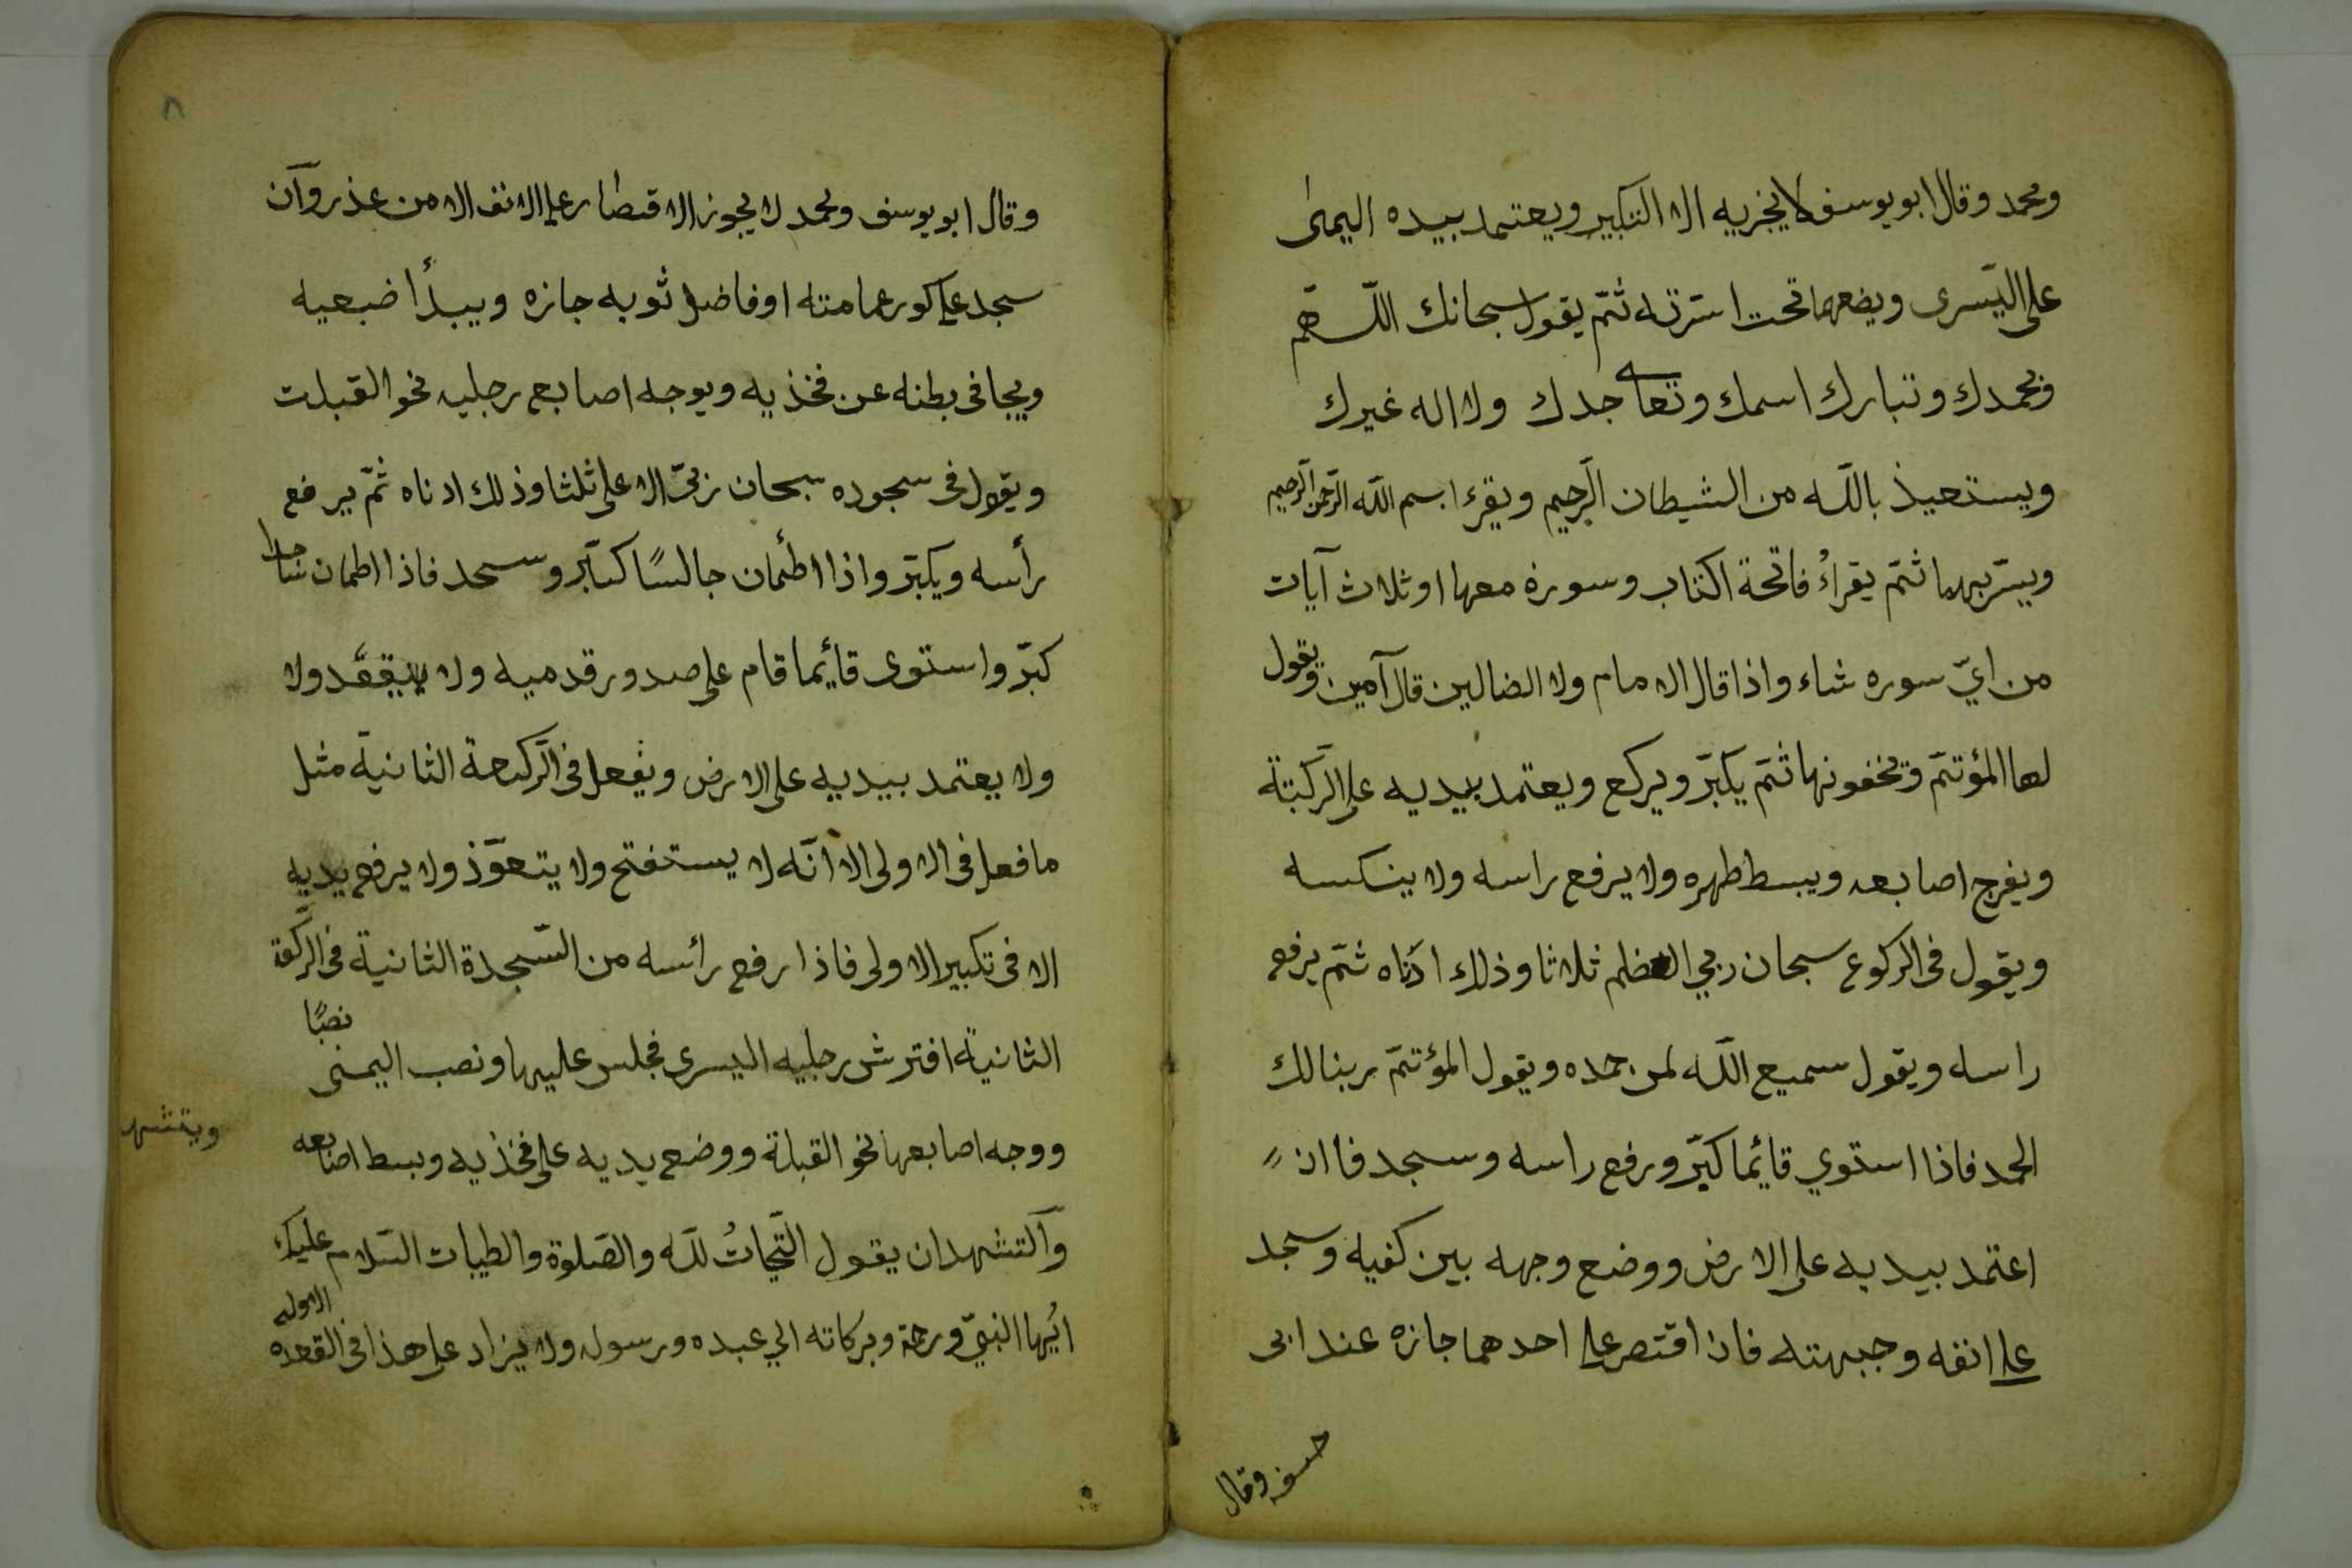 ومحمد وقال ابو يوسف لا يجزيه الا التكبير ويعتمد بيده اليمنى
على اليسرى ويضعهما تحت استرته ثمّ يقول سبحانك اللّهمّ
وبحمدك وتبارك اسمك وتعالى جدك ولا اله غيرك
ويستعيذ باللّه من الشيطان الرّجيم ويقرء بسم اللّه الرّحمن الرّحيم
ويسرّ بهما ثمّ يقراُ فاتحة الكتاب وسورة معها او ثلاث آيات
من ايّ سوره شاء واذا قال الامام ولا الضالين قال آمين ويقول
لها المؤتمّ ويخفونها ثمّ يكبّر ويركع ويعتمد بيديه على الرّكبتة
ويفرج اصابعه ويبسط ظهره ولا يرفع راسه ولا ينكسه
ويقول فى الركوع سبحان ربي العظيم ثلاثا وذلك ادناه ثمّ يرفع
راسه ويقول سميع اللّه لمن حمده ويقول المؤتمّ ربنا لك
الحمد فاذا استوي قائيما كبّر ورفع راسه وسجد فاان
اعتمد بيديه على الارض ووضع وجهه بين كفيه وسجد
على انفه وجبهته فان اقتصر على احدهما جازه عند ابى
حنيفه وقال
٨
وقال ابو يوسف ومحمد لا يجوز الاقتصار على الانف الا من عذر وآن
سجد على كور عمامته او فاضل ثوبه جازه ويبدأ ضبعيه
ويجافى بطنه عن فخذيه ويوجه اصابع رجليه نحو القبلت
ويقول فى سجوده سبحان ربّى الاعلى ثلثا وذلك ادناه ثمّ يرفع
رأسه ويكبّر واذا اطئمان جالسًا كبّر وسجد فاذا اطمان ساجدا
كبّر واستوى قائيما قام على صدور قدميه ولا يقعد ولا
ولا يعتمد بيديه على الارض ويفعل فى الرّكعة الثانية مثل
ما فعل فى الاولى الا انّه لا يستفتح ولا يتعوّذ ولا يرفع يديه
الا فى تكبير الاولى فاذا رفع رائسه من السّجدة الثانية فى الركعة
الثانية افترش رجليه اليسرى فجلس عليها ونصب اليمنى نصبًا
ووجه اصابعها نحو القبلة ووضع يديه على فخذيه وبسط اصابعه
ويتشهد
وآلتشهد ان يقول التّحياتُ للّه والصّلوة والطيبات السّلام عليك
ائيها النبيّ ورحمة وبركاته الي عبده ورسوله ولا يزاد على هذا فى القعده الاوله